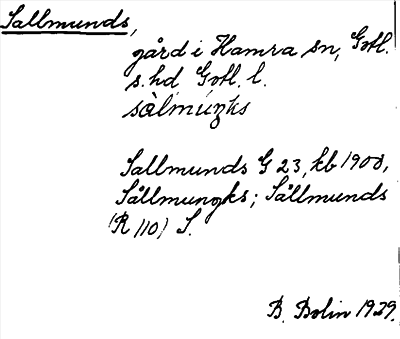 Sallmunds,
gård i Hamra sn, Gotl.
s. hd Gotl. l.
sàlmúŋks
Sallmunds G 23, kb 1900,
Sållmungks; Sållmunds
(R 110) S.
B. Bolin 1929.